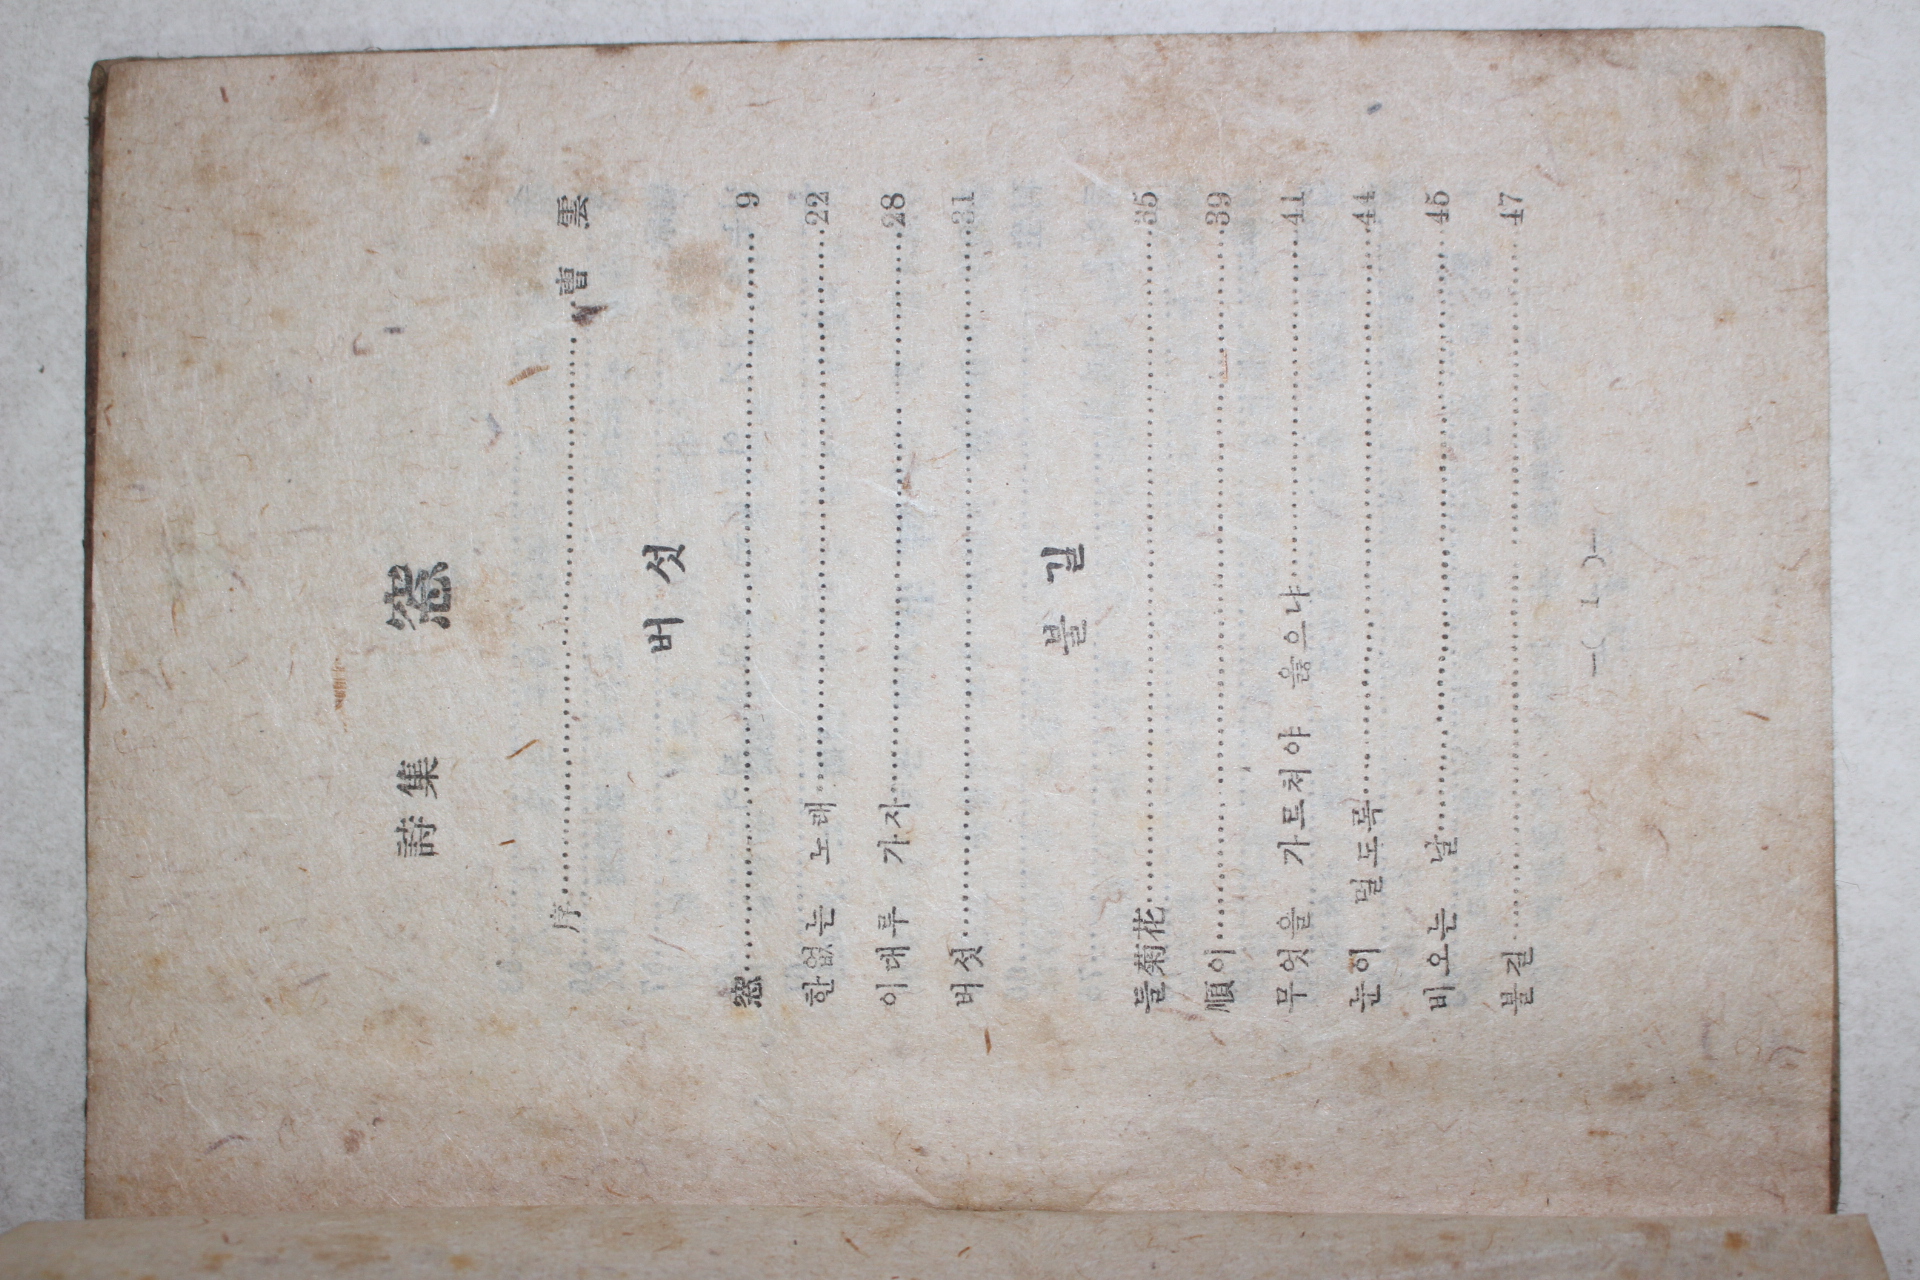 詩集 窓
序……………………………………曹 雲
버 섯
窓…………………………………… 9
한없는 노래……………………………………22
이대루 가자……………………………………28
버섯……………………………………31
불 길
들菊花……………………………………35
順이……………………………………39
무엇을 가르처야 옳으냐……………………………………41
눈이 멀도록……………………………………44
비오는 날……………………………………45
불길……………………………………47
—( 1 )—